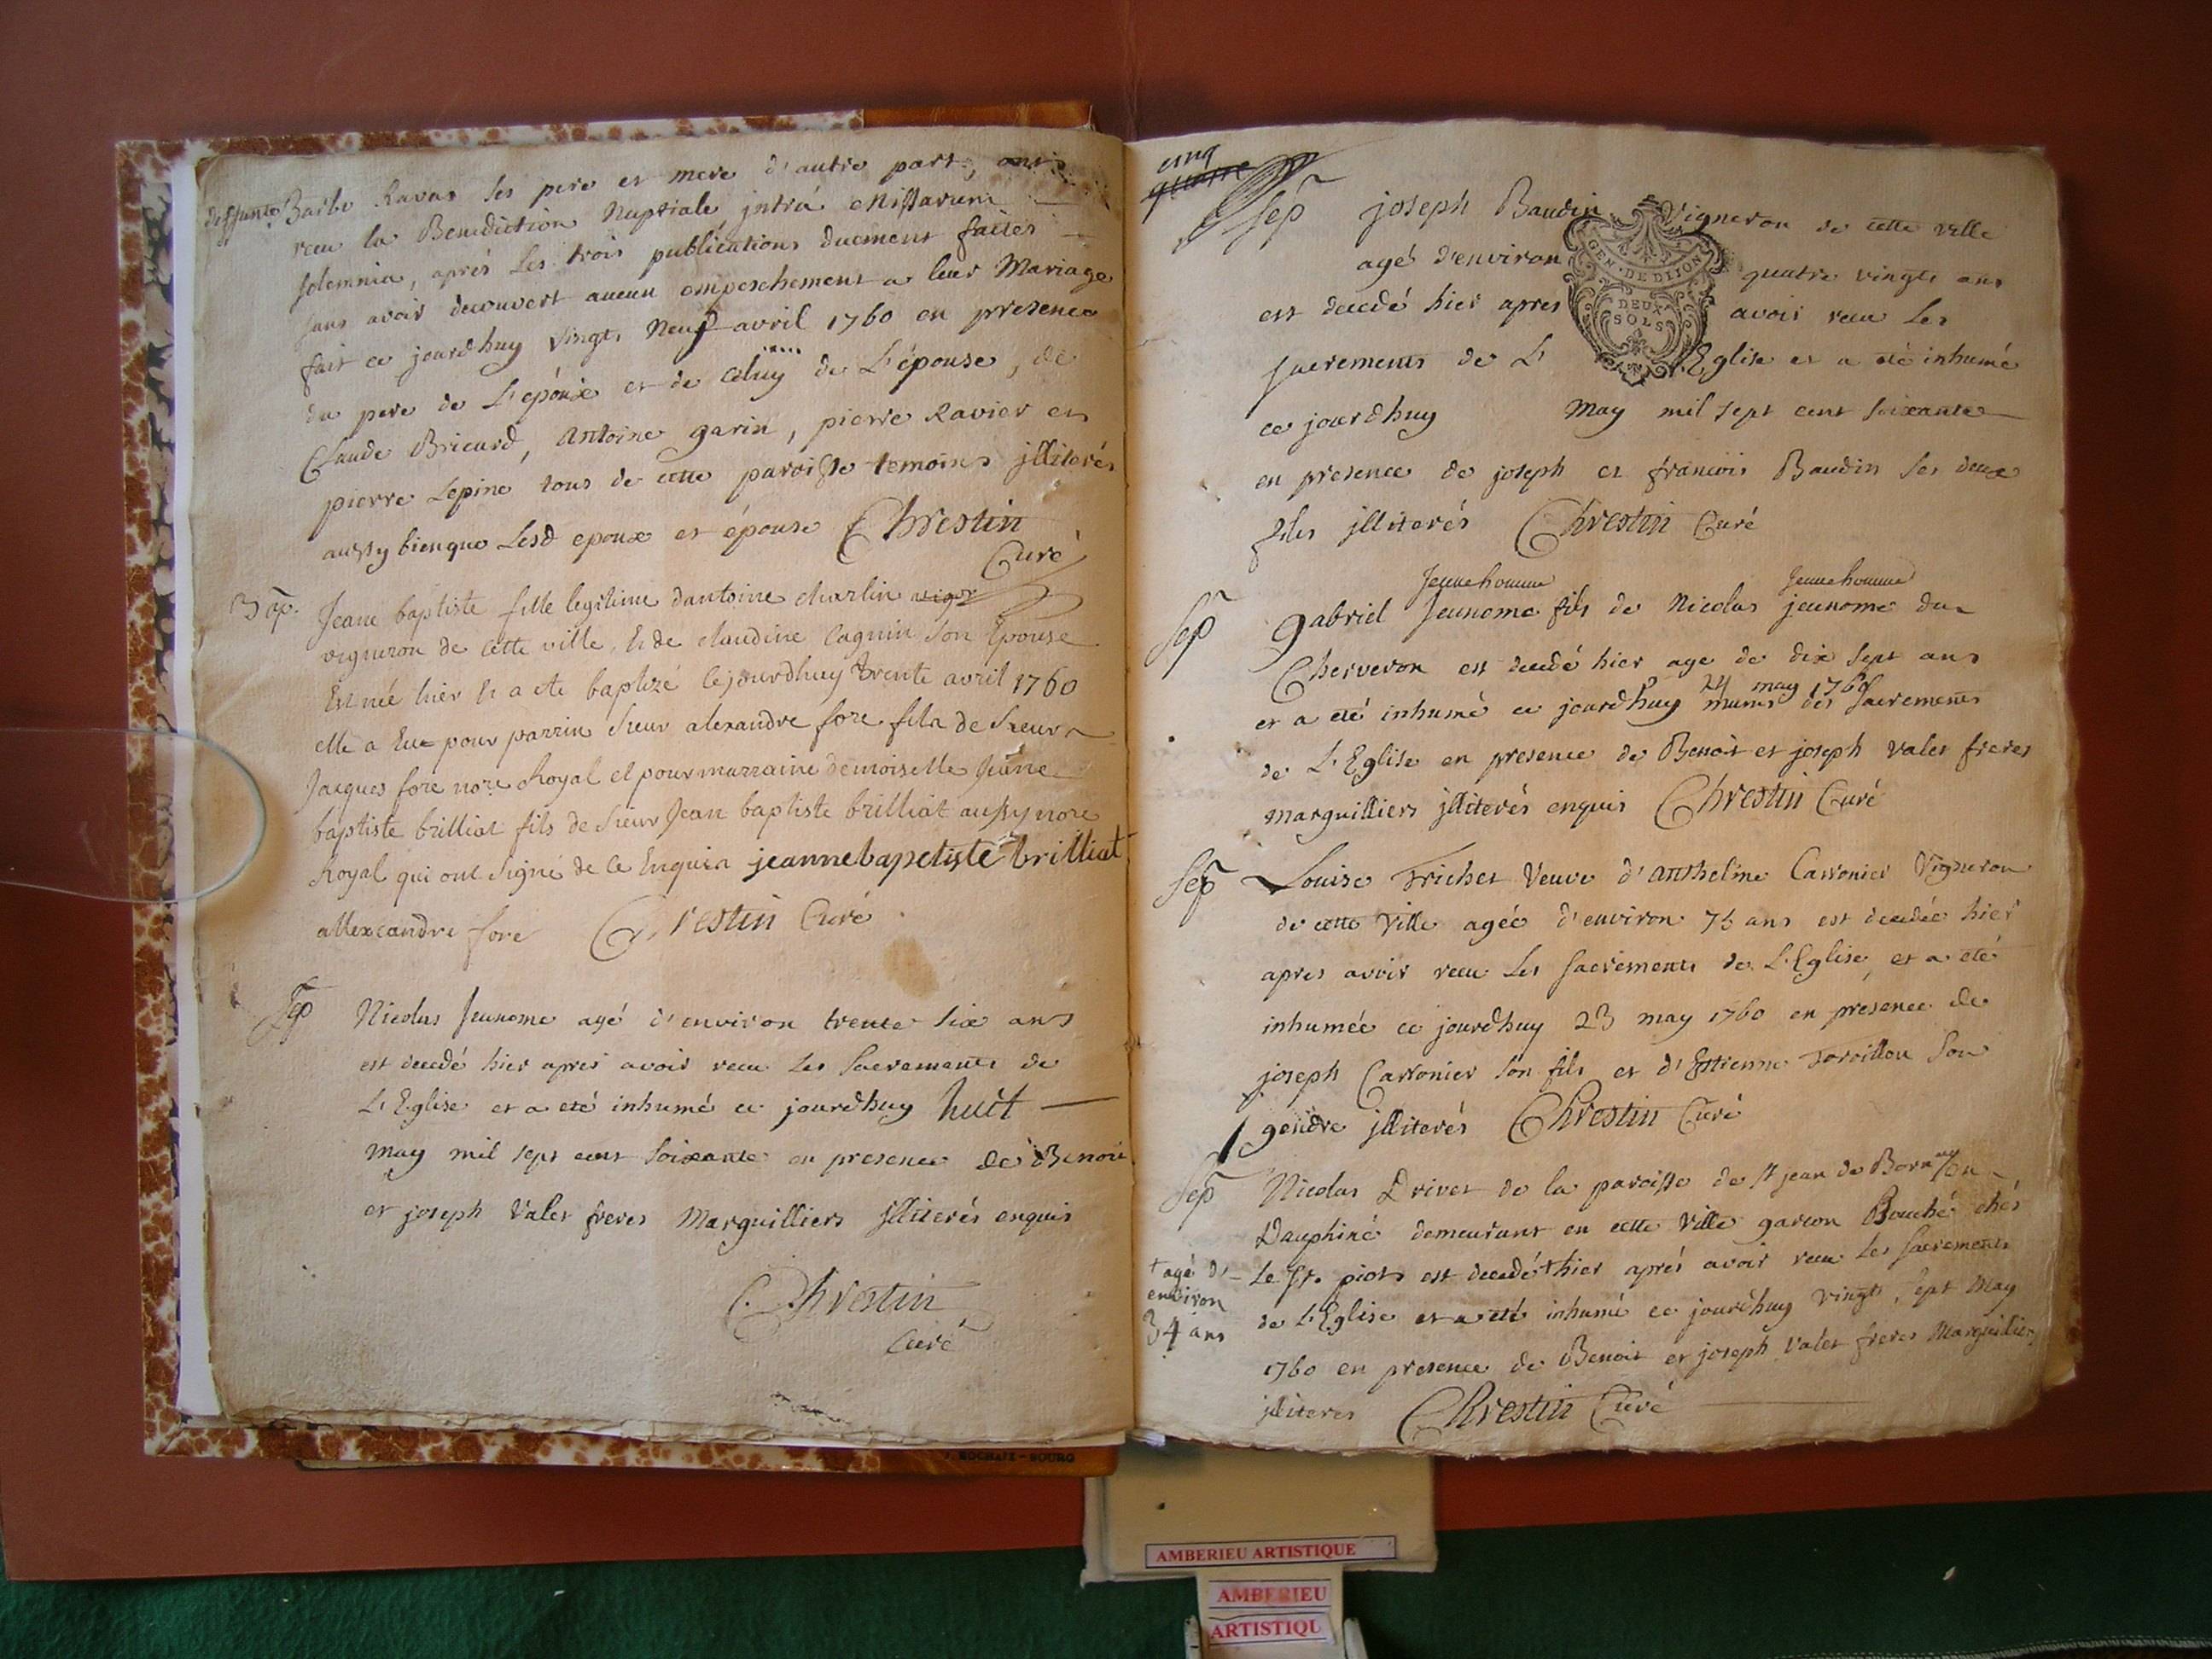 deffunte Barbe Ravas ses pere et mere d'autre part, ont
recu la Benediction Nuptiale jntrá Missarum
solemnia, aprés les trois publications duement faites
sans avoir decouvert aucun empeschement a leur Mariage
fait ce jourdhuy vingt Neuf avril 1760 en presence
du pere de L'epoux et de celuy de L'épouse, de
Claude Bricard, Antoine garin, pierre Ravier et
pierre Lepine tous de cette paroisse temoins jlliterés
aussy bien que Lesd epoux et épouse Chrestin
Curé
Bap. Jeane baptiste fille legitime dantoine charlin vigr
vigneron de cette ville, & de claudine Cagnin son Epouse
Est née hier & a ete baptizé cejourdhuy trente avril 1760
elle a Eue pour parrin sieur alexandre fore fils de sieur
Jacques fore nore Royal et pour marraine demoiselle Jeane
baptiste brilliat fils de sieur Jean baptiste brilliat aussy nore
Royal qui ont signé de ce Enquis jeannebapetiste brilliat
allexandre fore Chrestin Curé
Sep Nicolas Jeunome agé d'environ trente six ans
est decedé hier apres avoir recu les Sacrements de
L'Eglise et a eté inhumé ce jourdhuy huit
may mil sept cent soixante en presence de Benoit
et joseph Valet freres Marguilliers jlliterés enquis
Chrestin
Curé
cinq
quatre
Sep joseph Baudin Vigneron de cette ville
agé d'environ quatre vingts ans
GEN · DE DIJON
DEUX
SOLS
est decedé hier apres avoir recu les
sacrements de L' L'Eglise et a eté inhumé
ce jourdhuy may mil sept cent soixante
en presence de joseph et francois Baudin ses deux
fils jlliterés Chrestin Curé
Jeune homme Jeune homme
Sep gabriel Jeunome fils de Nicolas jeunome du
Cherveron est decedé hier age de dix sept ans
24 may 1760
et a eté inhumé ce jourdhuy munis des sacrements
de L'Eglise en presence de Benoit et joseph Valet freres
marguilliers jlliterés enquis Chrestin Curé
Sep Louise Trichet Veuve d'Anthelme Carronier Vigneron
de cette Ville agée d'environ 75 ans est decedée hier
apres avoir recu les sacrements de L'Eglise, et a eté
inhumée ce jourdhuy 23 may 1760 en présence de
joseph Carronier son fils et d'Estienne Tavoillon son
gendre jlliterés Chrestin Curé
Sep Nicolas Drivet de la paroisse de st jean de Bornay en
Dauphiné demeurant en cette Ville garcon Bouché chés
Le sr. piot est decedé + hier aprés avoir recu les sacrements
+ agé d'
environ
34 ans
de L'Eglise et a eté inhumé ce jourdhuy vingt sept May
1760 en presence de Benoit et joseph Valet freres Marguilliers
jlliteres Chrestin Curé
J. ROCHAIX - BOURG
AMBERIEU ARTISTIQUE
AMBERIEU
ARTISTIQU